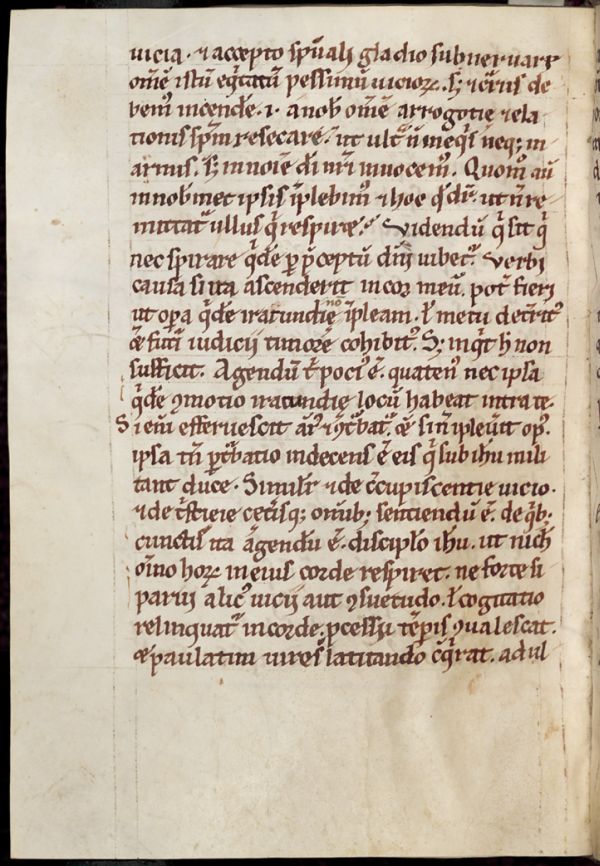 uicia. ⁊ accepto sp̄uali gladio subneruare
om̄e istū eq̄tatū pessimū uicioꝝ. sꝫ ⁊ c̄rus de
bem̉ incende᷑. i. a nob̄ om̄e arrogātie ⁊ ela
tionis sp̄m resecare. ut ult̄ n̄ in eq̄s neqꝫ in
armis. sꝫ in noīe dn̄i nr̄i inuocem̉. Quom̉ aū
in nobmet ipsis īplebim̉ ⁊ hoc qd̄ dr̄. ut n̄ re
mittat᷑ ullus q̄ respiret. Videndū q̄ sit q̄
nec spirare q̄de p̄ p̄ceptū dn̄i iubet᷑. Verbi
causa si ira ascenderit in cor meū. pot̄ fieri
ut oꝑa q̄de iracundię nō īpleam. ł metu deterrit᷒
& futuri iudicii timore cohibit᷒. Sꝫ inq̄t h̄ non
sufficit. Agendū t̄ poci᷒ ē. quaten᷒ nec ipsa
q̄de ꝯmotio iracundię locū habeat intra te.
Si eni effervescit anim᷒ ⁊ ꝯt᷑bat᷑. & si n̄ īpleuit op᷒.
ipsa tn̄ ꝑt᷑batio indecens ē eis q̄ sub ih̄u mili
tant duce. Similit̄ ⁊ de c̄cupiscentie uicio.
⁊ de t̄sticie cet̄isqꝫ omībꝫ sentiendū ē. de q̄bꝫ
cunctis ita agendū ē discip̄lo ih̄u. ut nich̄
om̄ino hoꝝ in eius corde respiret. ne forte si
parui alic᷒ uicii aut ꝯsuetudo. ł cogitatio
relinquat᷑ in corde. ꝓcessu tēporis ꝯualescat.
& paulatim uires latitando c̄q̄rat. ad ul